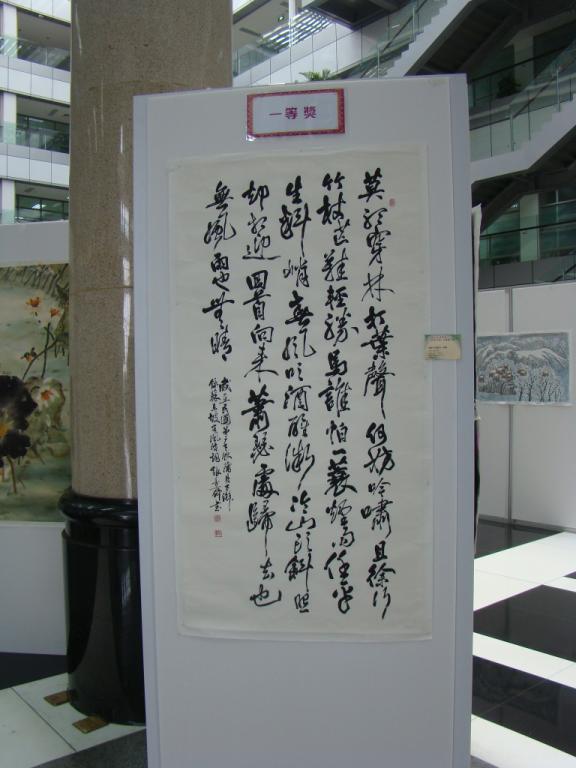 一等獎
莫聽穿林打葉聲何妨吟嘯且徐行
竹杖芒鞋輕勝馬誰怕一蓑煙雨任平
生料峭春風吹酒醒微冷山頭斜照
却相迎回首向來蕭瑟處歸去也
無風雨也無晴
錄蘇東坡定風波詞